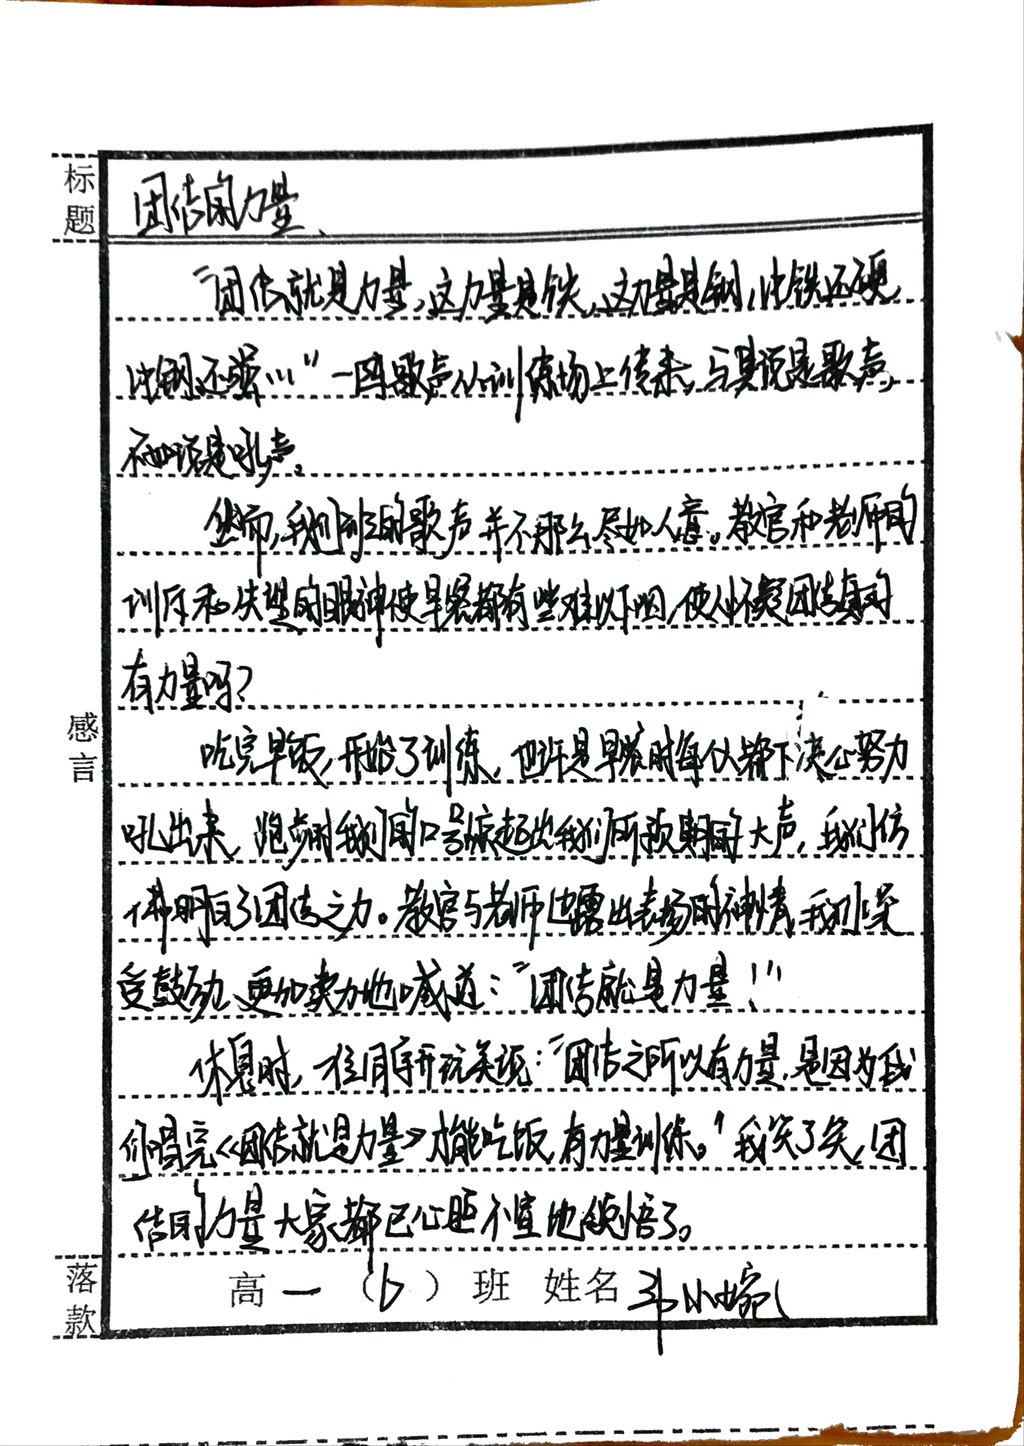 标题
团结的力量
“团结就是力量，这力量是铁，这力量是钢，比铁还硬，
比钢还强…”一阵歌声从训练场上传来，与其说是歌声，
不如说是吼声。
然而，我们班的歌声并不那么尽如人意。教官和老师的
训斥和失望的眼神使早餐都有些难以下咽，使人怀疑团结真的
有力量吗？
吃完早饭，开始了训练，也许是早餐时每人都下决心努力
吼出来，跑步时我们的口号惊起出我们所预期的大声，我们仿
佛明白了团结之力。教官与老师也露出表扬的神情，我们深
受鼓励，更加卖力地喊道：“团结就是力量！”
休息时，一位同学开玩笑说：“团结之所以有力量，是因为我
们唱完《团结就是力量》才能吃饭，有力量训练。”我笑了笑，团
结的力量大家都已心照不宣地领悟了。
感言
落款
高一（6）班 姓名